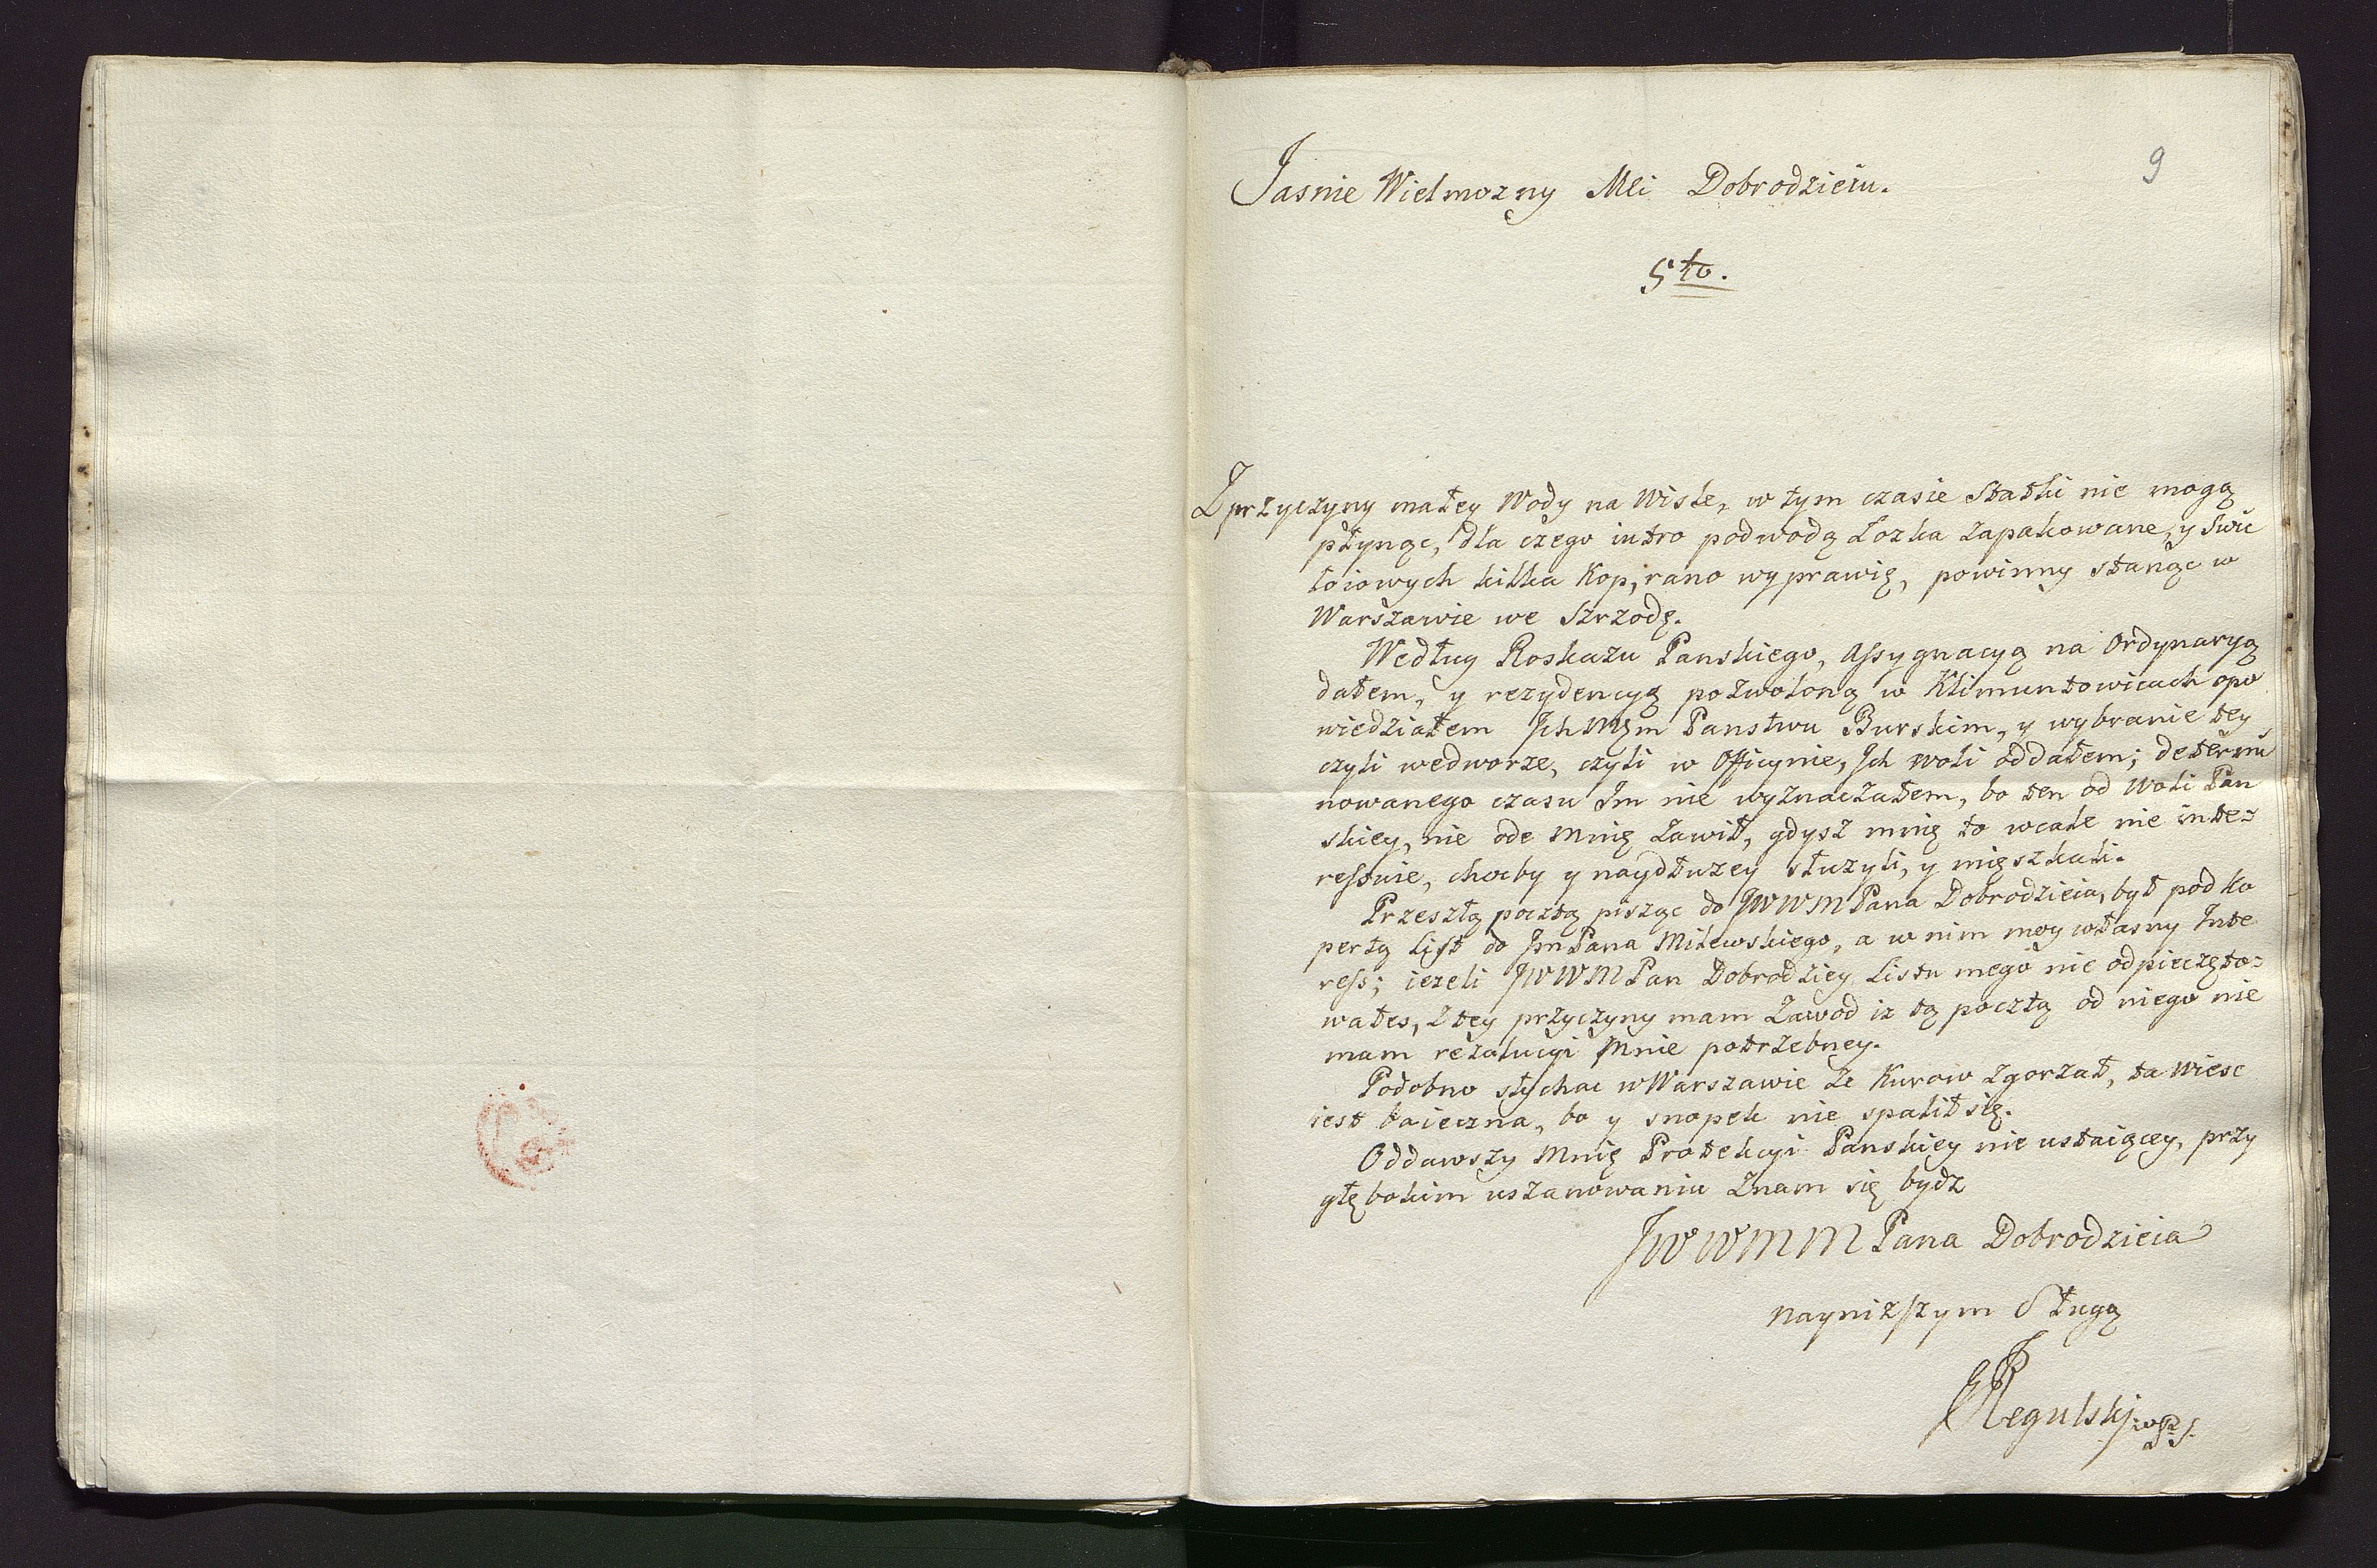 9
Jasnie Wielmozny Mci Dobrodzieiu.
5to.
Z przyczyny małey Wody na Wisle, w tym czasie Statki nie mogą
płynąc, dla czego iutro podwodą Łozka zapakowane, y Swic
łoiowych kilka Kop, rano wyprawię, powinny stanąc w
Warszawie we Szrzodę.
Według Roskazu Panskiego, Assygnacyą na Ordynaryą
dałem, y rezydencyą pozwoloną w Klimuntowicach opo
wiedziałem Jch Mćm Panstwu Burskim, y wybranie tey
czyli wedworze, czyli w Officynie, Jch woli oddałem; determi
nowanego czasu Im nie wyznaczałem, bo ten od Woli Pan
skiey, nie ode Mnię zawił, gdysz mnię to wcale nie inte=
ressuie, choćby y naydłuzey słuzyli, y mięszkali.
Przeszłą pocztą pisząc do JWWMPana Dobrodzieia, był pod Ko
pertą List do JmPana Milewskiego, a w nim moy własny Inte
ress; iezeli JWWMPan Dobrodziey Listu mego nie odpieczęto=
wałes, z tey przyczyny mam Zawod iz tą pocztą od niego nie
mam rezolucyi Mnie potrzebney.
Podobno słychac w Warszawie ze Kurow zgorzał, ta wiesc
iest baieczna, bo y snopek nie spalił się.
Oddawszy Mnię Protekcyi Panskiey nie ustaiącey, przy
głębokim uszanowaniu znam się bydz
JWWMMPana Dobrodzieia
nayniższym Sługą
Regulskj